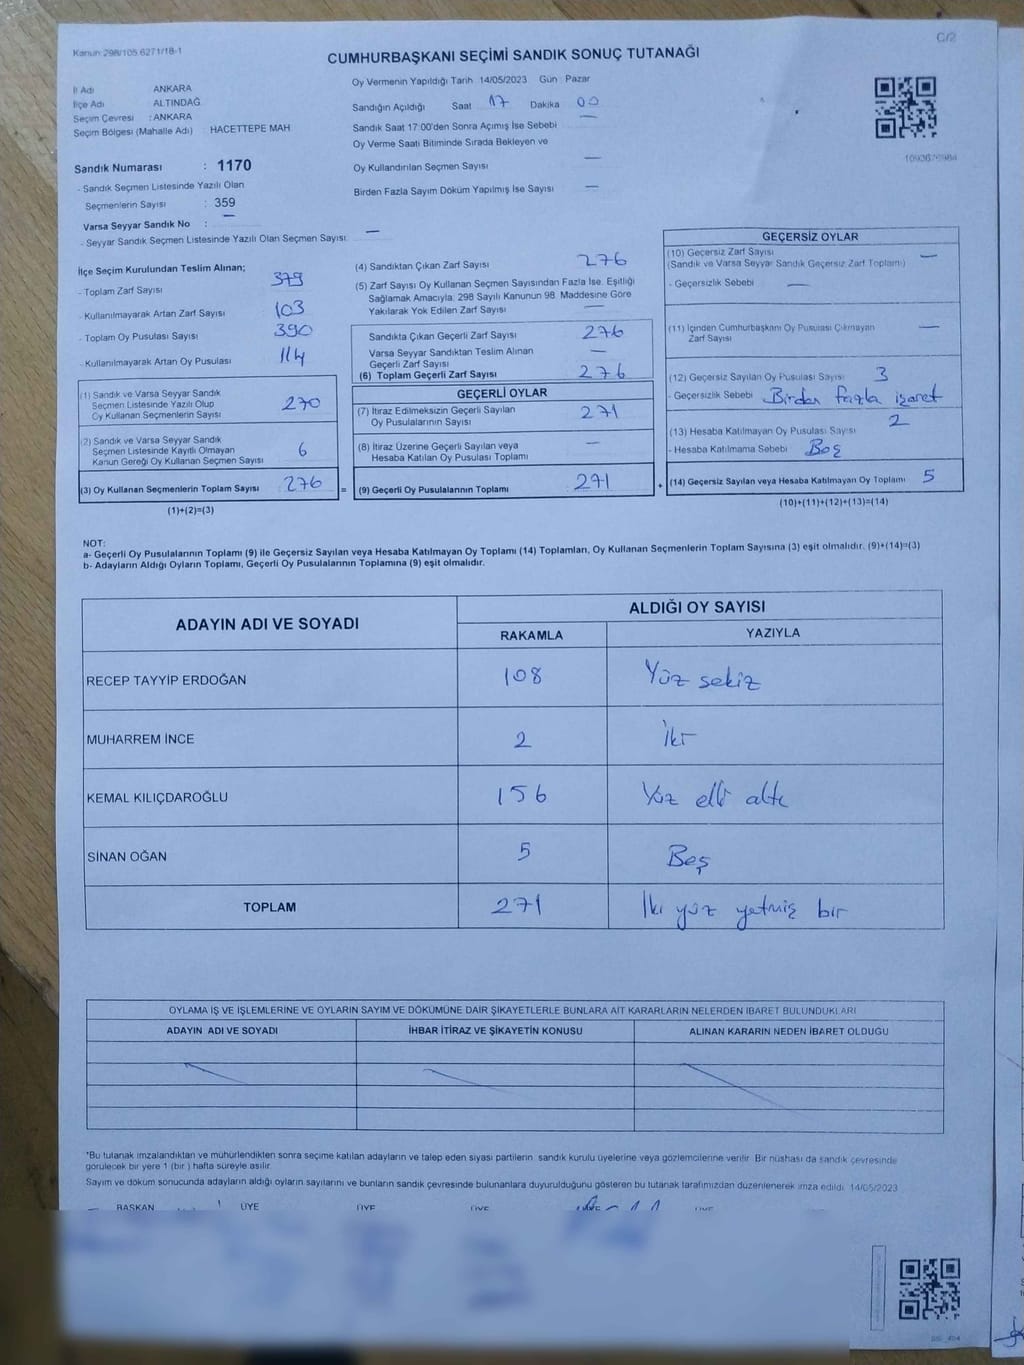 Kanun: 298/105 6271/18-1
C/2
CUMHURBAŞKANI SEÇİMİ SANDIK SONUÇ TUTANAĞI
İl Adı ANKARA
İlçe Adı ALTINDAĞ
Seçim Çevresi : ANKARA
Seçim Bölgesi (Mahalle Adı) HACETTEPE MAH
Sandık Numarası : 1170
- Sandık Seçmen Listesinde Yazılı Olan
Seçmenlerin Sayısı : 359
Varsa Seyyar Sandık No : —
- Seyyar Sandık Seçmen Listesinde Yazılı Olan Seçmen Sayısı: —
Oy Vermenin Yapıldığı Tarih 14/05/2023 Gün : Pazar
Sandığın Açıldığı Saat 17 Dakika 00
Sandık Saat 17:00'den Sonra Açımış İse Sebebi —
Oy Verme Saati Bitiminde Sırada Bekleyen ve
Oy Kullandırılan Seçmen Sayısı —
Birden Fazla Sayım Döküm Yapılmış İse Sayısı —
İlçe Seçim Kurulundan Teslim Alınan;
- Toplam Zarf Sayısı 379
- Kullanılmayarak Artan Zarf Sayısı 103
- Toplam Oy Pusulası Sayısı 390
- Kullanılmayarak Artan Oy Pusulası 114
(1) Sandık ve Varsa Seyyar Sandık
Seçmen Listesinde Yazılı Olup
Oy Kullanan Seçmenlerin Sayısı 270
(2) Sandık ve Varsa Seyyar Sandık
Seçmen Listesinde Kayıtlı Olmayan
Kanun Gereği Oy Kullanan Seçmen Sayısı 6
(3) Oy Kullanan Seçmenlerin Toplam Sayısı 276 =
(1)+(2)=(3)
(4) Sandıktan Çıkan Zarf Sayısı 276
(5) Zarf Sayısı Oy Kullanan Seçmen Sayısından Fazla İse, Eşitliği
Sağlamak Amacıyla, 298 Sayılı Kanunun 98. Maddesine Göre
Yakılarak Yok Edilen Zarf Sayısı —
Sandıkta Çıkan Geçerli Zarf Sayısı 276
Varsa Seyyar Sandıktan Teslim Alınan
Geçerli Zarf Sayısı —
(6) Toplam Geçerli Zarf Sayısı 276
GEÇERLİ OYLAR
(7) İtiraz Edilmeksizin Geçerli Sayılan
Oy Pusulalarının Sayısı 271
(8) İtiraz Üzerine Geçerli Sayılan veya
Hesaba Katılan Oy Pusulası Toplamı —
(9) Geçerli Oy Pusulalarının Toplamı 271 +
GEÇERSİZ OYLAR
(10) Geçersiz Zarf Sayısı
(Sandık ve Varsa Seyyar Sandık Geçersiz Zarf Toplamı) —
- Geçersizlik Sebebi —
(11) İçinden Cumhurbaşkanı Oy Pusulası Çıkmayan
Zarf Sayısı —
(12) Geçersiz Sayılan Oy Pusulası Sayısı 3
- Geçersizlik Sebebi Birden fazla işaret
(13) Hesaba Katılmayan Oy Pusula Sayısı 2
- Hesaba Katılmama Sebebi Boş
(14) Geçersiz Sayılan veya Hesaba Katılmayan Oy Toplamı 5
(10)+(11)+(12)+(13)=(14)
NOT:
a- Geçerli Oy Pusulalarının Toplamı (9) ile Geçersiz Sayılan veya Hesaba Katılmayan Oy Toplamı (14) Toplamları, Oy Kullanan Seçmenlerin Toplam Sayısına (3) eşit olmalıdır. (9)+(14)=(3)
b- Adayların Aldığı Oyların Toplamı, Geçerli Oy Pusulalarının Toplamına (9) eşit olmalıdır.
ADAYIN ADI VE SOYADI ALDIĞI OY SAYISI
RAKAMLA YAZIYLA
RECEP TAYYİP ERDOĞAN 108 Yüz sekiz
MUHARREM İNCE 2 İki
KEMAL KILIÇDAROĞLU 156 Yüz elli altı
SİNAN OĞAN 5 Beş
TOPLAM 271 İki yüz yetmiş bir
OYLAMA İŞ VE İŞLEMLERİNE VE OYLARIN SAYIM VE DÖKÜMÜNE DAİR ŞİKAYETLERLE BUNLARA AİT KARARLARIN NELERDEN İBARET BULUNDUKLARI
ADAYIN ADI VE SOYADI İHBAR İTİRAZ VE ŞİKAYETİN KONUSU ALINAN KARARIN NEDEN İBARET OLDUĞU
*Bu tutanak imzalandıktan ve mühürlendikten sonra seçime katılan adayların ve talep eden siyasi partilerin, sandık kurulu üyelerine veya gözlemcilerine verilir. Bir nüshası da sandık çevresinde
görülecek bir yere 1 (bir ) hafta süreyle asılır.
Sayım ve döküm sonucunda adayların aldığı oyların sayılarını ve bunların sandık çevresinde bulunanlara duyurulduğunu gösteren bu tutanak tarafımızdan düzenlenerek imza edildi. 14/05/2023
BAŞKAN ÜYE ÜYE ÜYE ÜYE